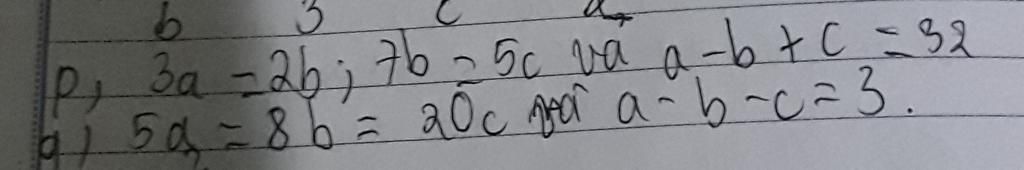 b 3 c a
p, 3a = 2b; 7b = 5c và a - b + c = 32
q) 5a = 8b = 20c và a - b - c = 3.